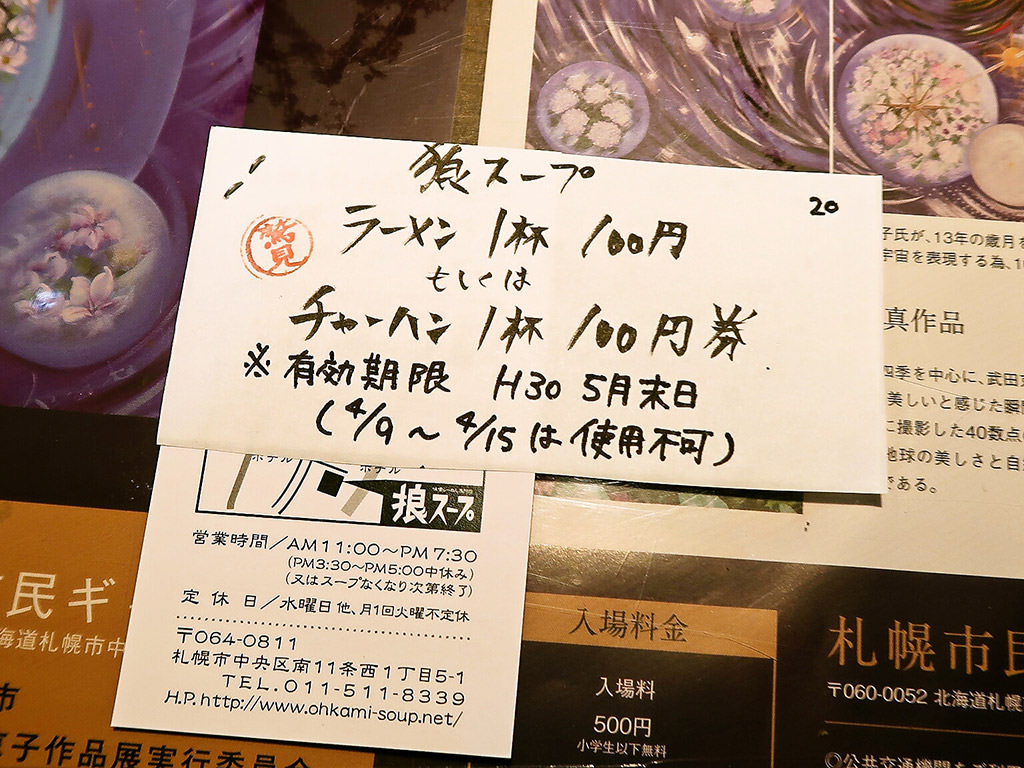 狼スープ
20
ラーメン 1杯 100円
もしくは
チャーハン 1杯 100円券
※有効期限 H30 5月末日
(4/9～4/15は使用不可)
鷲見
ホテル
ホテル
狼スープ
営業時間／AM11:00～PM7:30
(PM3:30～PM5:00中休み)
(又はスープなくなり次第終了)
定休日／水曜日他、月1回火曜不定休
〒064-0811
札幌市中央区南11条西1丁目5-1
TEL.011-511-8339
H.P.http://www.ohkami-soup.net/
子氏が、13年の歳月を
宇宙を表現する為、
真作品
四季を中心に、武田
美しいと感じた瞬
に撮影した40数点
地球の美しさと自
である。
民ギ
海道札幌市中
市
子作品展実行委員会
入場料金
入場料
500円
小学生以下無料
札幌市民
〒060-0052 北海道札幌
◎公共交通機関をご利用